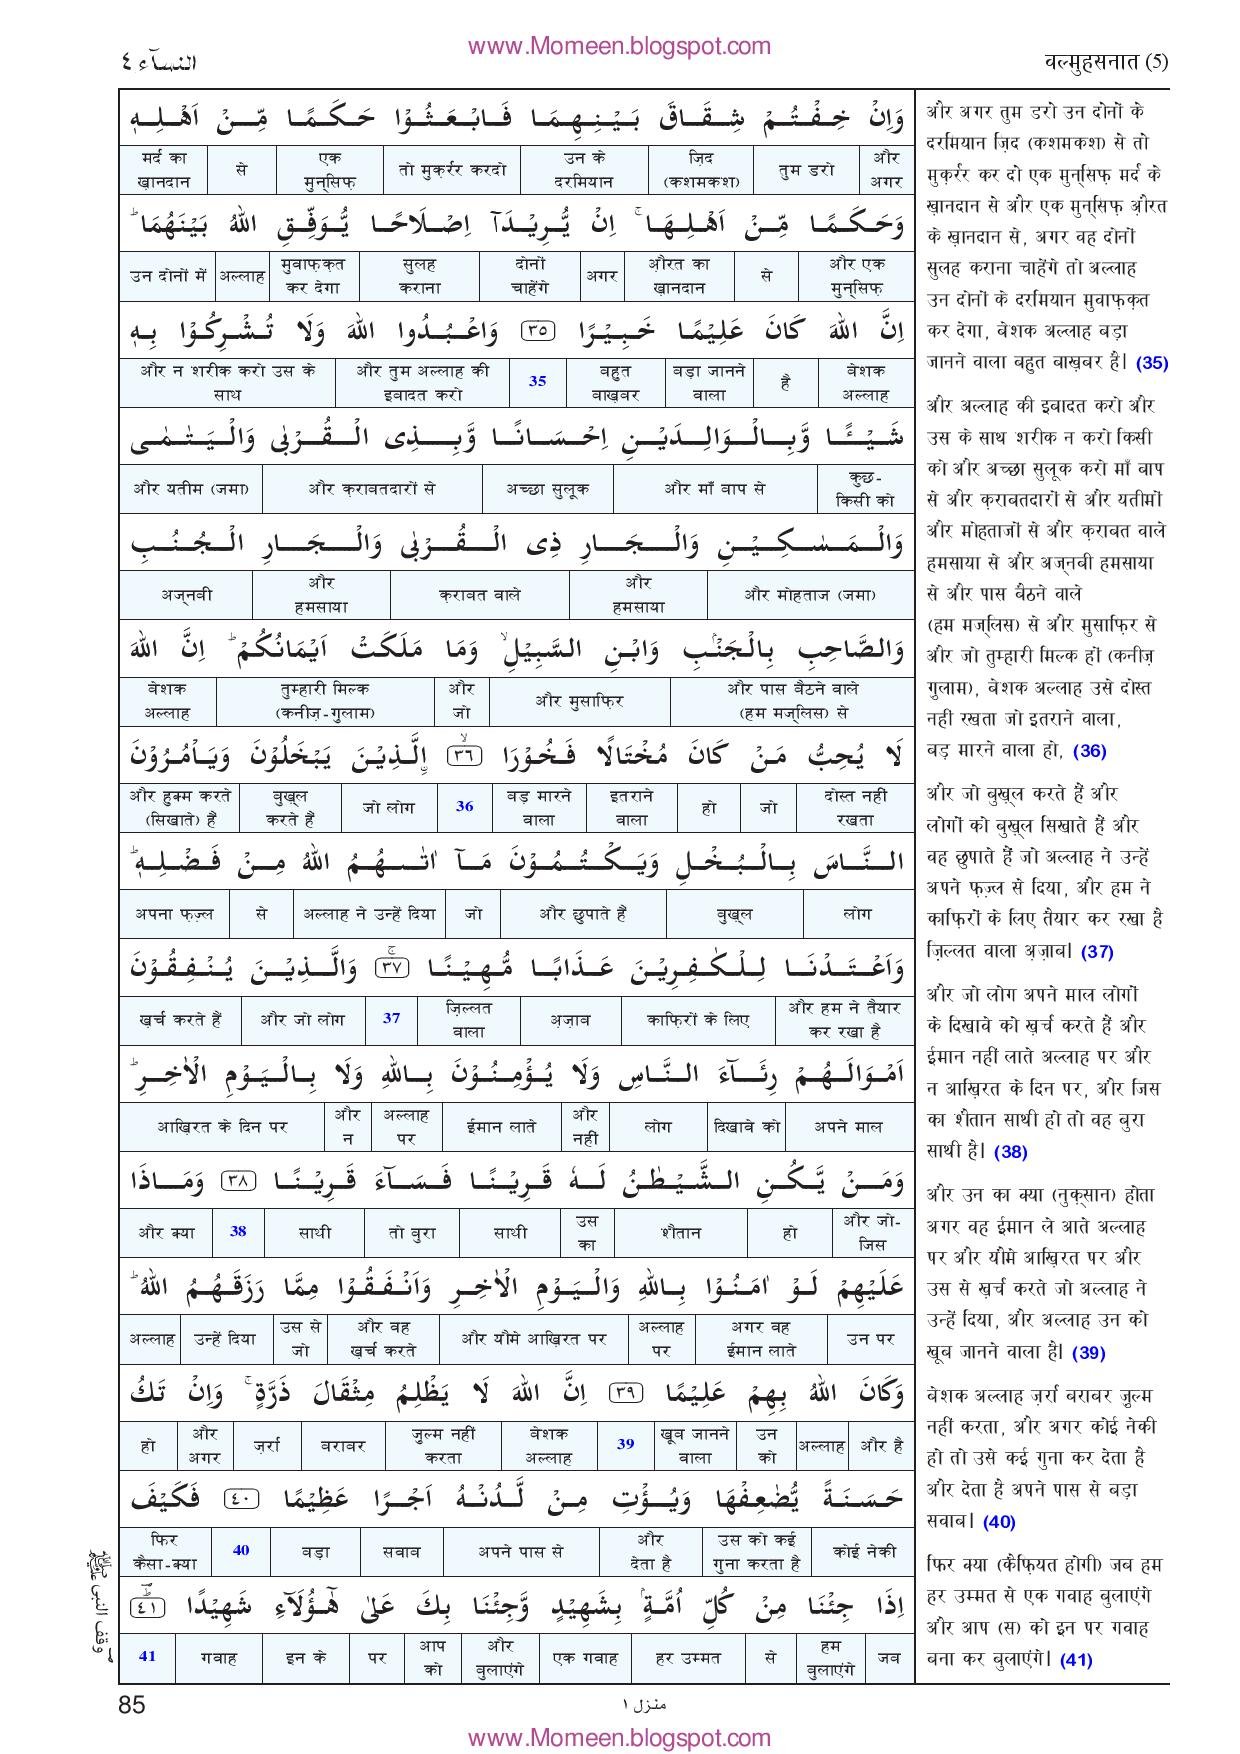 www.Momeen.blogspot.com
النسآء ٤
वल्मुहसनात (5)
وَاِنْ خِفْتُمْ شِقَاقَ بَيْنِهِمَا فَابْعَثُوْا حَكَمًا مِّنْ اَهْلِهٖ
और अगर | तुम डरो | ज़िद (कशमकश) | उन के दरमियान | तो मुक़र्रर करदो | एक मुन्सिफ़ | से | मर्द का ख़ानदान
وَحَكَمًا مِّنْ اَهْلِهَا ۚ اِنْ يُّرِيْدَآ اِصْلَاحًا يُّوَفِّقِ اللّٰهُ بَيْنَهُمَا ؕ
और एक मुन्सिफ़ | से | औ़रत का ख़ानदान | अगर | दोनों चाहेंगे | सुलह कराना | मुवाफ़क़त कर देगा | अल्लाह | उन दोनों में
اِنَّ اللّٰهَ كَانَ عَلِيْمًا خَبِيْرًا ﴿٣٥﴾ وَاعْبُدُوا اللّٰهَ وَلَا تُشْرِكُوْا بِهٖ
बेशक अल्लाह | है | बड़ा जानने वाला | बहुत बाख़बर | 35 | और तुम अल्लाह की इबादत करो | और न शरीक करो उस के साथ
شَيْـًٔا وَّبِالْوَالِدَيْنِ اِحْسَانًا وَّبِذِى الْقُرْبٰى وَالْيَتٰمٰى
कुछ-किसी को | और माँ बाप से | अच्छा सुलूक | और क़राबतदारों से | और यतीम (जमा)
وَالْمَسٰكِيْنِ وَالْجَارِ ذِى الْقُرْبٰى وَالْجَارِ الْجُنُبِ
और मोहताज (जमा) | और हमसाया | क़राबत वाले | और हमसाया | अज्नबी
وَالصَّاحِبِ بِالْجَنْۢبِ وَابْنِ السَّبِيْلِ ۙ وَمَا مَلَكَتْ اَيْمَانُكُمْ ؕ اِنَّ اللّٰهَ
और पास बैठने वाले (हम मज्लिस) से | और मुसाफ़िर | और जो | तुम्हारी मिल्क (कनीज़-गुलाम) | बेशक अल्लाह
لَا يُحِبُّ مَنْ كَانَ مُخْتَالًا فَخُوْرَا ﴿٣٦﴾ ۙ اۨلَّذِيْنَ يَبْخَلُوْنَ وَيَاْمُرُوْنَ
दोस्त नहीं रखता | जो | हो | इतराने वाला | बड़ मारने वाला | 36 | जो लोग | बुख़्ल करते हैं | और हुक्म करते (सिखाते) हैं
النَّاسَ بِالْبُخْلِ وَيَكْتُمُوْنَ مَآ اٰتٰىهُمُ اللّٰهُ مِنْ فَضْلِهٖ ؕ
लोग | बुख़्ल | और छुपाते हैं | जो | अल्लाह ने उन्हें दिया | से | अपना फ़ज़्ल
وَاَعْتَدْنَا لِلْكٰفِرِيْنَ عَذَابًا مُّهِيْنًا ﴿٣٧﴾ ۚ وَالَّذِيْنَ يُنْفِقُوْنَ
और हम ने तैयार कर रखा है | काफ़िरों के लिए | अ़ज़ाब | ज़िल्लत वाला | 37 | और जो लोग | ख़र्च करते हैं
اَمْوَالَهُمْ رِئَآءَ النَّاسِ وَلَا يُؤْمِنُوْنَ بِاللّٰهِ وَلَا بِالْيَوْمِ الْاٰخِرِ ؕ
अपने माल | दिखावे को | लोग | और नहीं | ईमान लाते | अल्लाह पर | और न | आख़िरत के दिन पर
وَمَنْ يَّكُنِ الشَّيْطٰنُ لَهٗ قَرِيْنًا فَسَآءَ قَرِيْنًا ﴿٣٨﴾ وَمَاذَا
और जो-जिस | हो | शैतान | उस का | साथी | तो बुरा | साथी | 38 | और क्या
عَلَيْهِمْ لَوْ اٰمَنُوْا بِاللّٰهِ وَالْيَوْمِ الْاٰخِرِ وَاَنْفَقُوْا مِمَّا رَزَقَهُمُ اللّٰهُ ؕ
उन पर | अगर वह ईमान लाते | अल्लाह पर | और यौमे आख़िरत पर | और वह ख़र्च करते | उस से जो | उन्हें दिया | अल्लाह
وَكَانَ اللّٰهُ بِهِمْ عَلِيْمًا ﴿٣٩﴾ اِنَّ اللّٰهَ لَا يَظْلِمُ مِثْقَالَ ذَرَّةٍ ۚ وَاِنْ تَكُ
और है | अल्लाह | उन को | खूब जानने वाला | 39 | बेशक अल्लाह | जुल्म नहीं करता | बराबर | ज़र्रा | और अगर | हो
حَسَنَةً يُّضٰعِفْهَا وَيُؤْتِ مِنْ لَّدُنْهُ اَجْرًا عَظِيْمًا ﴿٤٠﴾ فَكَيْفَ
कोई नेकी | उस को कई गुना करता है | और देता है | अपने पास से | सवाब | बड़ा | 40 | फिर कैसा-क्या
اِذَا جِئْنَا مِنْ كُلِّ اُمَّةٍۭ بِشَهِيْدٍ وَّجِئْنَا بِكَ عَلٰى هٰٓؤُلَآءِ شَهِيْدًا ﴿٤١﴾ ؕ
जब | हम बुलाएंगे | से | हर उम्मत | एक गवाह | और बुलाएंगे | आप को | पर | इन के | गवाह | 41
وقف النبى ﷺ
और अगर तुम डरो उन दोनों के
दरमियान ज़िद (कशमकश) से तो
मुक़र्रर कर दो एक मुन्सिफ़ मर्द के
ख़ानदान से और एक मुन्सिफ़ औ़रत
के ख़ानदान से, अगर वह दोनों
सुलह कराना चाहेंगे तो अल्लाह
उन दोनों के दरमियान मुवाफ़क़त
कर देगा, बेशक अल्लाह बड़ा
जानने वाला बहुत बाख़बर है। (35)
और अल्लाह की इबादत करो और
उस के साथ शरीक न करो किसी
को और अच्छा सुलूक करो माँ बाप
से और क़राबतदारों से और यतीमों
और मोहताजों से और क़राबत वाले
हमसाया से और अज्नबी हमसाया
से और पास बैठने वाले
(हम मज्लिस) से और मुसाफ़िर से
और जो तुम्हारी मिल्क हों (कनीज़
गुलाम), बेशक अल्लाह उसे दोस्त
नहीं रखता जो इतराने वाला,
बड़ मारने वाला हो, (36)
और जो बुख़्ल करते हैं और
लोगों को बुख़्ल सिखाते हैं और
वह छुपाते हैं जो अल्लाह ने उन्हें
अपने फ़ज़्ल से दिया, और हम ने
काफ़िरों के लिए तैयार कर रखा है
ज़िल्लत वाला अ़ज़ाब। (37)
और जो लोग अपने माल लोगों
के दिखावे को ख़र्च करते हैं और
ईमान नहीं लाते अल्लाह पर और
न आख़िरत के दिन पर, और जिस
का शैतान साथी हो तो वह बुरा
साथी है। (38)
और उन का क्या (नुक़्सान) होता
अगर वह ईमान ले आते अल्लाह
पर और यौमे आख़िरत पर और
उस से ख़र्च करते जो अल्लाह ने
उन्हें दिया, और अल्लाह उन को
खूब जानने वाला है। (39)
बेशक अल्लाह ज़र्रा बराबर जुल्म
नहीं करता, और अगर कोई नेकी
हो तो उसे कई गुना कर देता है
और देता है अपने पास से बड़ा
सवाब। (40)
फिर क्या (कैफ़ियत होगी) जब हम
हर उम्मत से एक गवाह बुलाएंगे
और आप (स) को इन पर गवाह
बना कर बुलाएंगे। (41)
85
منزل ١
www.Momeen.blogspot.com